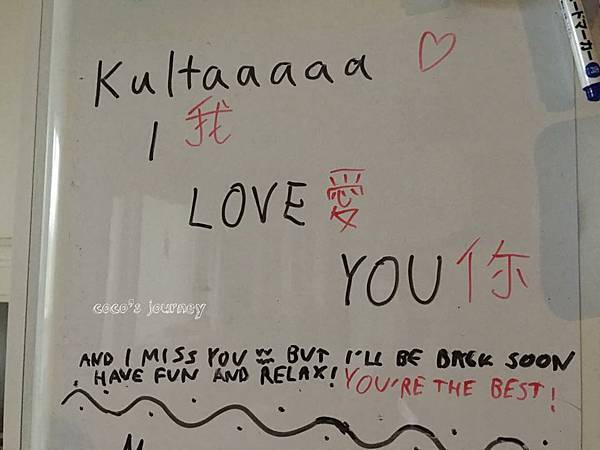 Kultaaaaa ♡
I 我
LOVE 愛
YOU 你
coco's journey
AND I MISS YOU ≈ BUT I'LL BE BACK SOON
HAVE FUN AND RELAX! YOU'RE THE BEST!